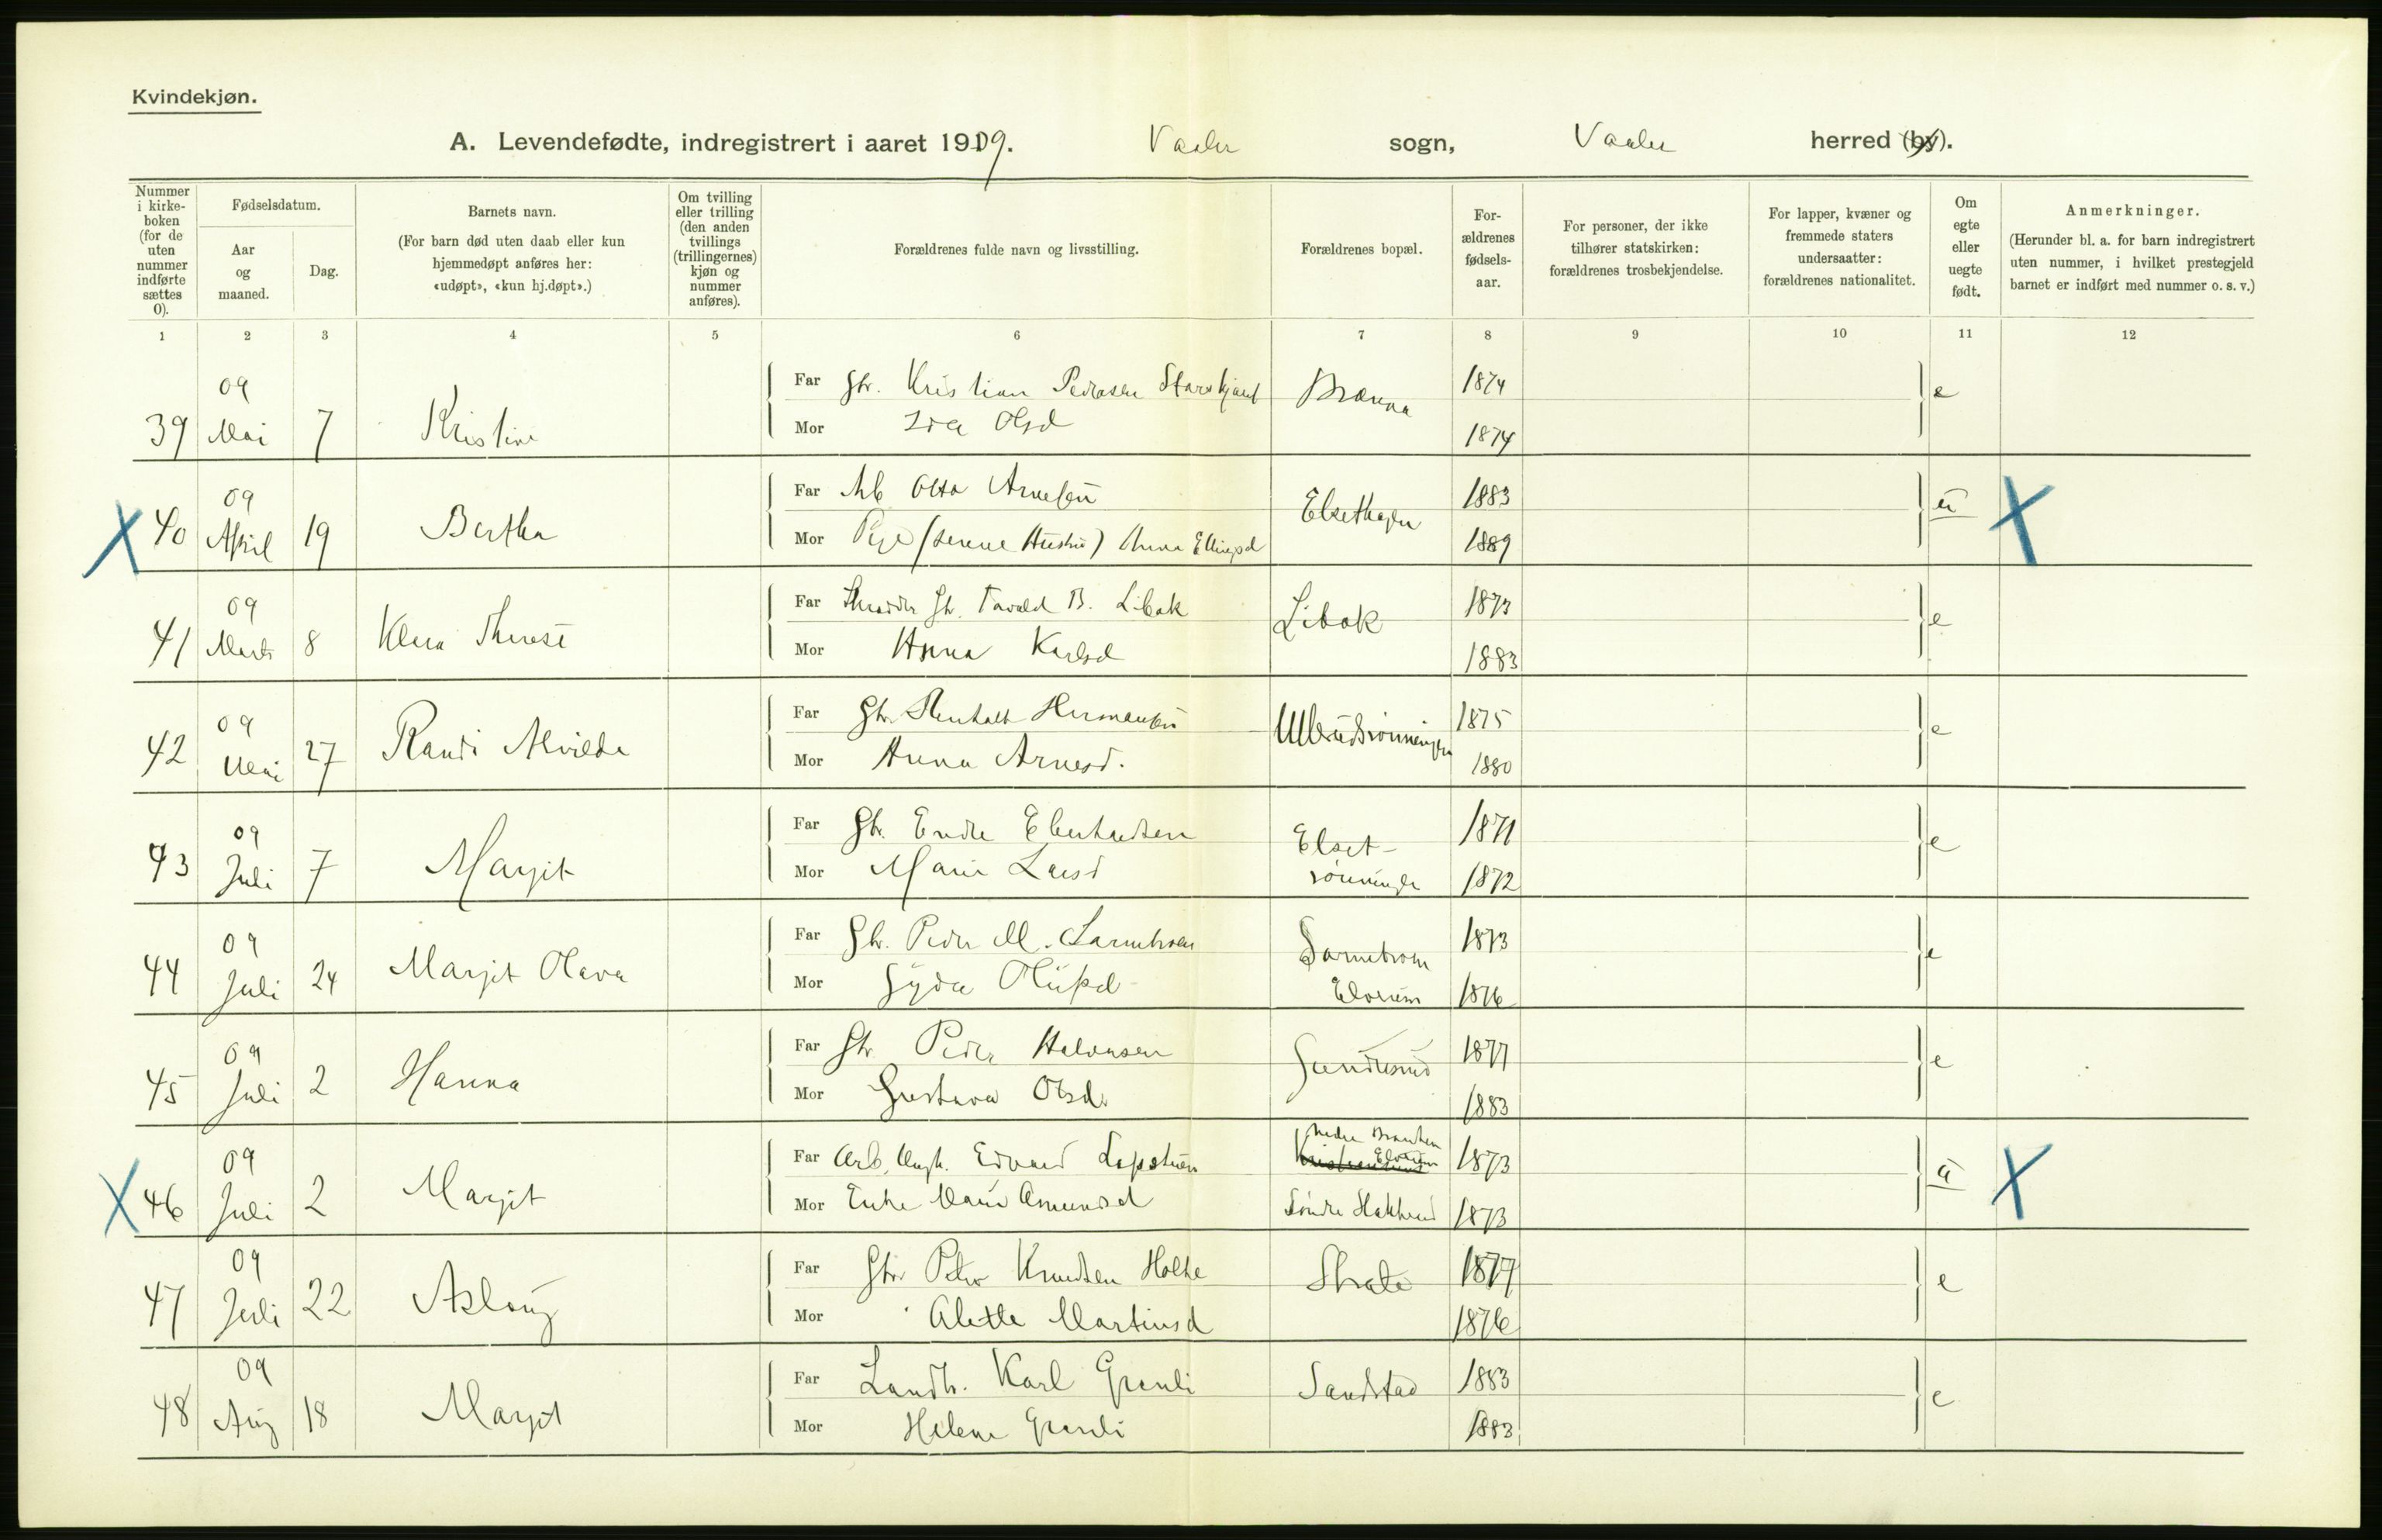 Kvindekjøn.
A. Levendefødte, indregistrert i aaret 1909. Vaaler sogn, Vaaler herred (by).
Nummer i kirke-boken (for de uten nummer indførte sættes 0).
Fødselsdatum.
Aar og maaned.
Dag.
Barnets navn.
(For barn død uten daab eller kun hjemmedøpt anføres her: «udøpt», «kun hj.døpt».)
Om tvilling eller trilling (den anden tvillings (trillingernes) kjøn og nummer anføres).
Forældrenes fulde navn og livsstilling.
Forældrenes bopæl.
For-ældrenes fødsels-aar.
For personer, der ikke tilhører statskirken: forældrenes trosbekjendelse.
For lapper, kvæner og fremmede staters undersaatter: forældrenes nationalitet.
Om egte eller uegte født.
Anmerkninger.
(Herunder bl. a. for barn indregistrert uten nummer, i hvilket prestegjeld barnet er indført med nummer o. s. v.)
1 2 3 4 5 6 7 8 9 10 11 12
09
Far Gbr. Kristian Pedersen 1874 e
39 Mai 7 Kristine
Mor Ida Olsd 1874
09
Far Arb Otto Arnesen Elsethagen 1883 u
X 40 April 19 Bertha X
Mor Pige Anna Ellingsd 1889
09
Far Gbr. B. Libak Libak 1873 e
41 Marts 8 Klara Therese
Mor Anna Karlsd 1883
09
Far Gbr. Hermansen 1875 e
42 Mai 27 Randi Alvilde
Mor Anna Arnesd. 1880
09
Far Gbr. Endre Eberhardsen Elset- 1871 e
43 Juli 7 Margit
Mor Marie Larsd rönningen 1872
09
Far Gbr. Peder M. 1873 e
44 Juli 24 Margit Olava
Mor Gyda Elverum 1876
09
Far Gbr Peder Halvorsen 1877 e
45 Juli 2 Hanna
Mor Gustava Olsd. 1883
09 Nedre
Far Arb. Ungk. Edvard Elverum 1873 u
X 46 Juli 2 Margit X
Mor Enke Marie Amundsd Söndre 1873
09
Far Gbr Peter Knudsen Holte 1877 e
47 Juli 22 Aslaug
Mor Alette Martinsd 1876
09
Far Landh. Karl Grenli Sandstad 1883 e
48 Aug 18 Margit
Mor Helene Grenli 1883